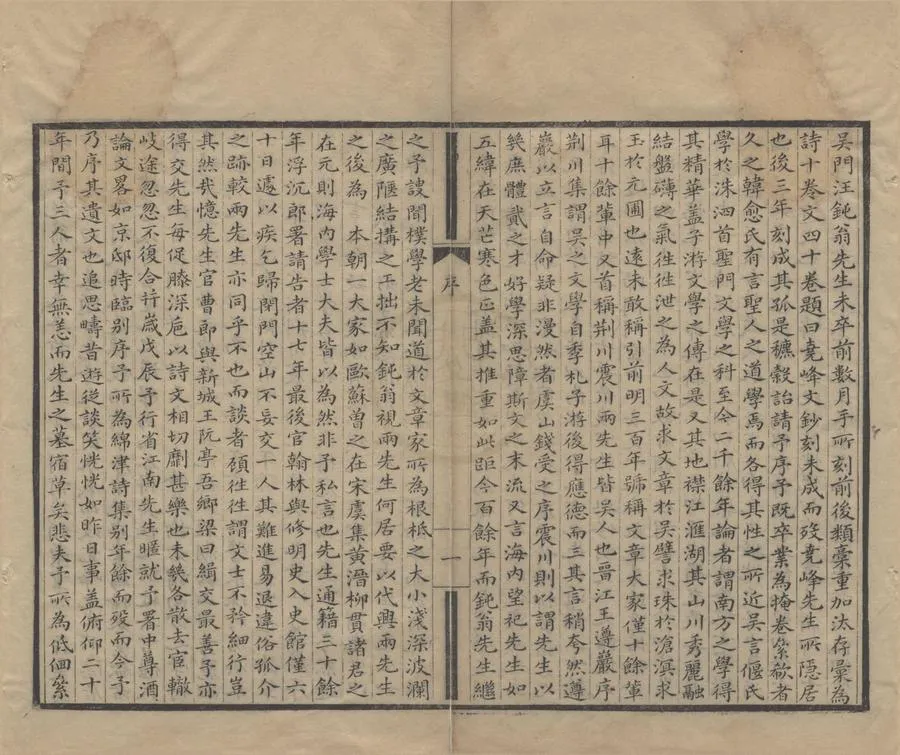 吳門汪鈍翁先生未卒前數月手所刻前後類稾重加汰存彙為
詩十卷文四十卷題曰堯峰文鈔刻未成而歿堯峰先生所隱居
也後三年刻成其孤是穮穀詒請予序予既卒業為掩卷絫欷者
久之韓愈氏有言聖人之道學焉而各得其性之所近吳言偃氏
學於洙泗首聖門文學之科至今二千餘年論者謂南方之學得
其精華蓋子游文學之傳在是又其地襟江滙湖其山川秀麗融
結盤礴之氣徃徃泄之為人文故求文章於吳譬求珠於滄溟求
玉於元圃也遠未敢稱引前明三百年號稱文章大家僅十餘輩
耳十餘輩中又首稱荆川震川兩先生皆吳人也晉江王遵巖序
荆川集謂吳之文學自季札子游後得應德而三其言稍夸然遵
巖以立言自命疑非漫然者虞山錢受之序震川則以謂先生以
㡬庶體貳之才好學深思障斯文之末流又言海內望祀先生如
五緯在天芒寒色正蓋其推重如此距今百餘年而鈍翁先生繼
序
一
之予謏聞樸學老未聞道於文章家所為根柢之大小淺深波瀾
之廣陿結搆之工拙不知鈍翁視兩先生何居要以代興兩先生
之後為 本朝一大家如歐蘇曾之在宋虞集黃溍柳貫諸君之
在元則海內學士大夫皆以為然非予私言也先生通籍三十餘
年浮沉郎署請告者十七年最後官翰林與修明史入史館僅六
十日遽以疾乞歸閉門空山不妄交一人其難進易退違俗孤介
之跡較兩先生亦同乎不也而談者頎徃徃謂文士不矜細行豈
其然哉憶先生官曹郎與新城王阮亭吾鄉梁曰緝交最善予亦
得交先生每促膝深巵以詩文相切劘甚樂也未㡬各散去宦轍
岐途忽忽不復合并嵗戊辰予行省江南先生暱就予署中尊酒
論文畧如京邸時臨别序予所為綿津詩集别年餘而歿而今予
乃序其遺文也追思疇昔遊從談笑恍恍如昨日事蓋俯仰二十
年間予三人者幸無恙而先生之墓宿草矣悲夫予所為低佪絫